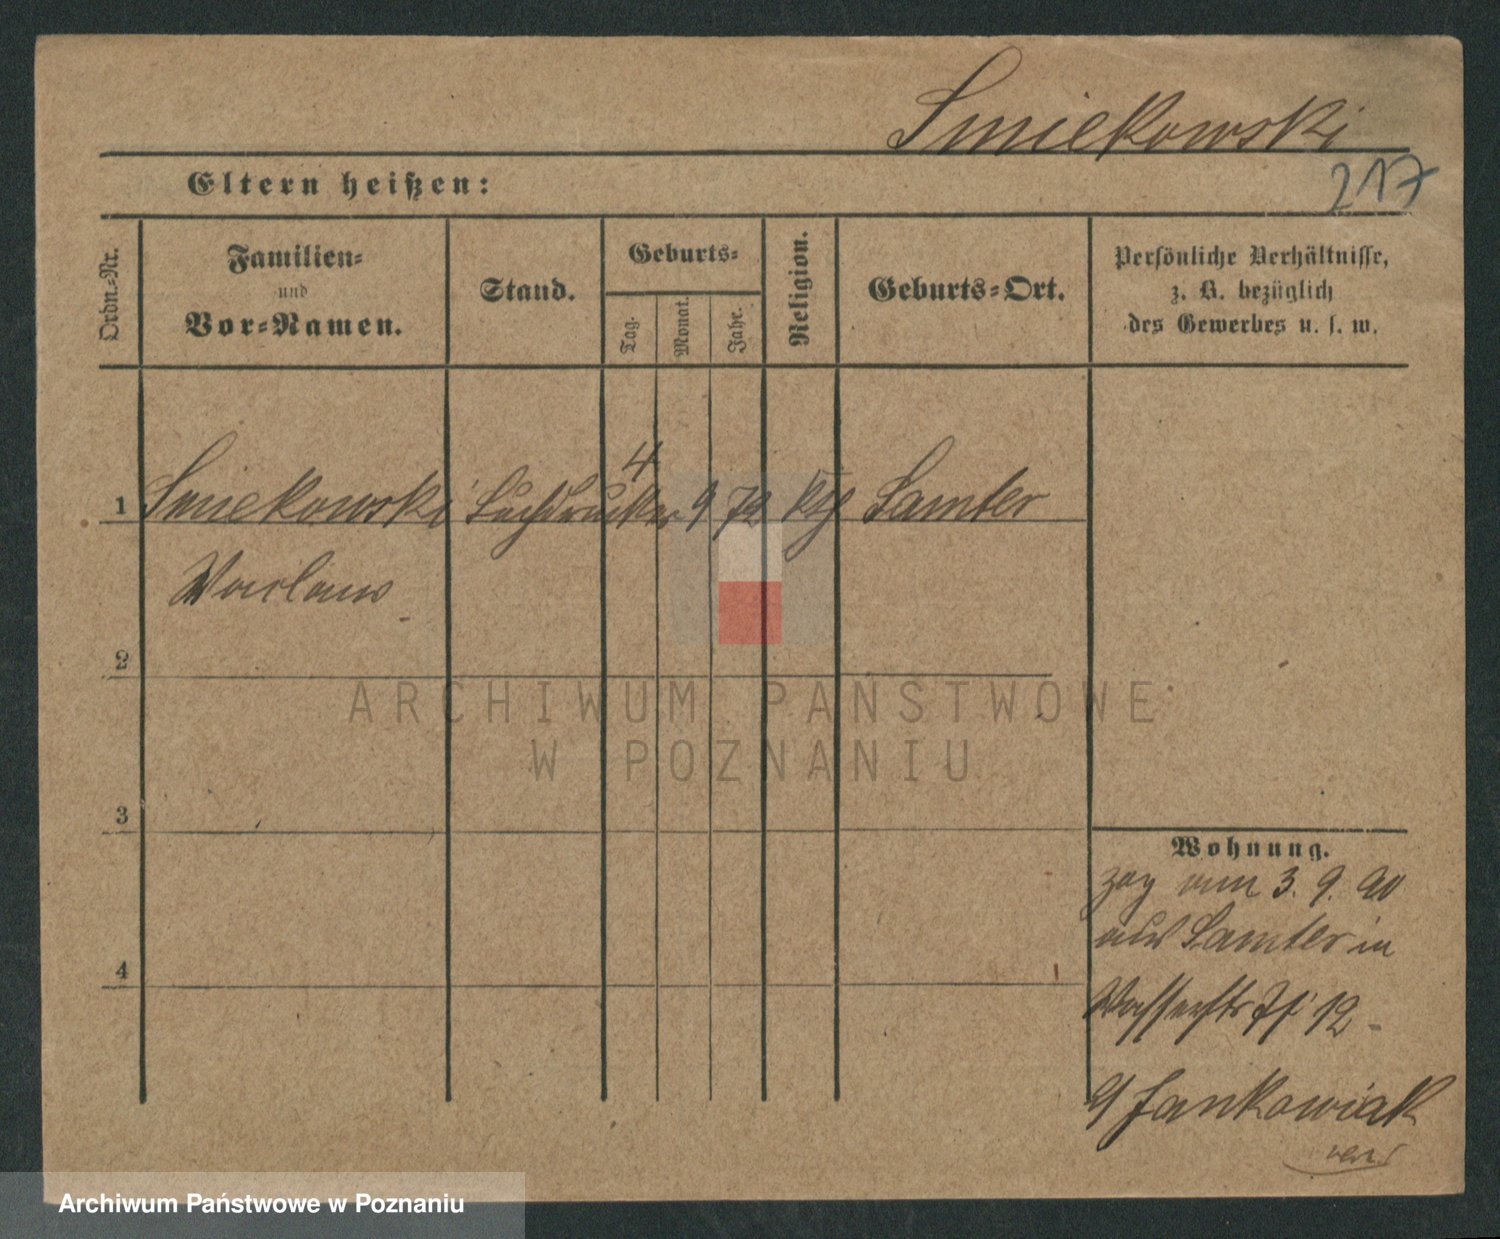 Smiekowski
217
Eltern heißen:
Ordn.-Nr.
Familien-
und
Vor-Namen.
Stand.
Geburts-
Tag.
Monat.
Jahr.
Religion.
Geburts-Ort.
Persönliche Verhältnisse,
z. B. bezüglich
des Gewerbes u. s. w.
1 Smiekowski Buchdrucker 4 9 72 kth Samter
Waclaw
2
ARCHIWUM PAŃSTWOWE
W POZNANIU
3
Wohnung.
zog am 3. 9. 90
aus Samter in
12
4
Jankowiak
verz.
Archiwum Państwowe w Poznaniu